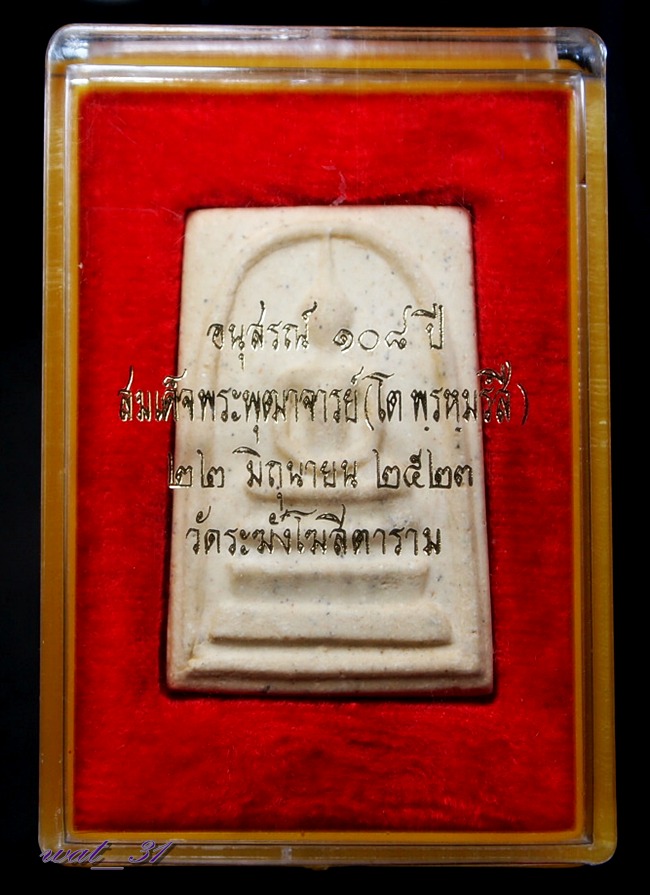 อนุสรณ์ ๑๐๘ ปี
สมเด็จพระพุฒาจารย์ (โต พฺรหฺมรํสี)
๒๒ มิถุนายน ๒๕๒๓
วัดระฆังโฆสิตาราม
wat_31